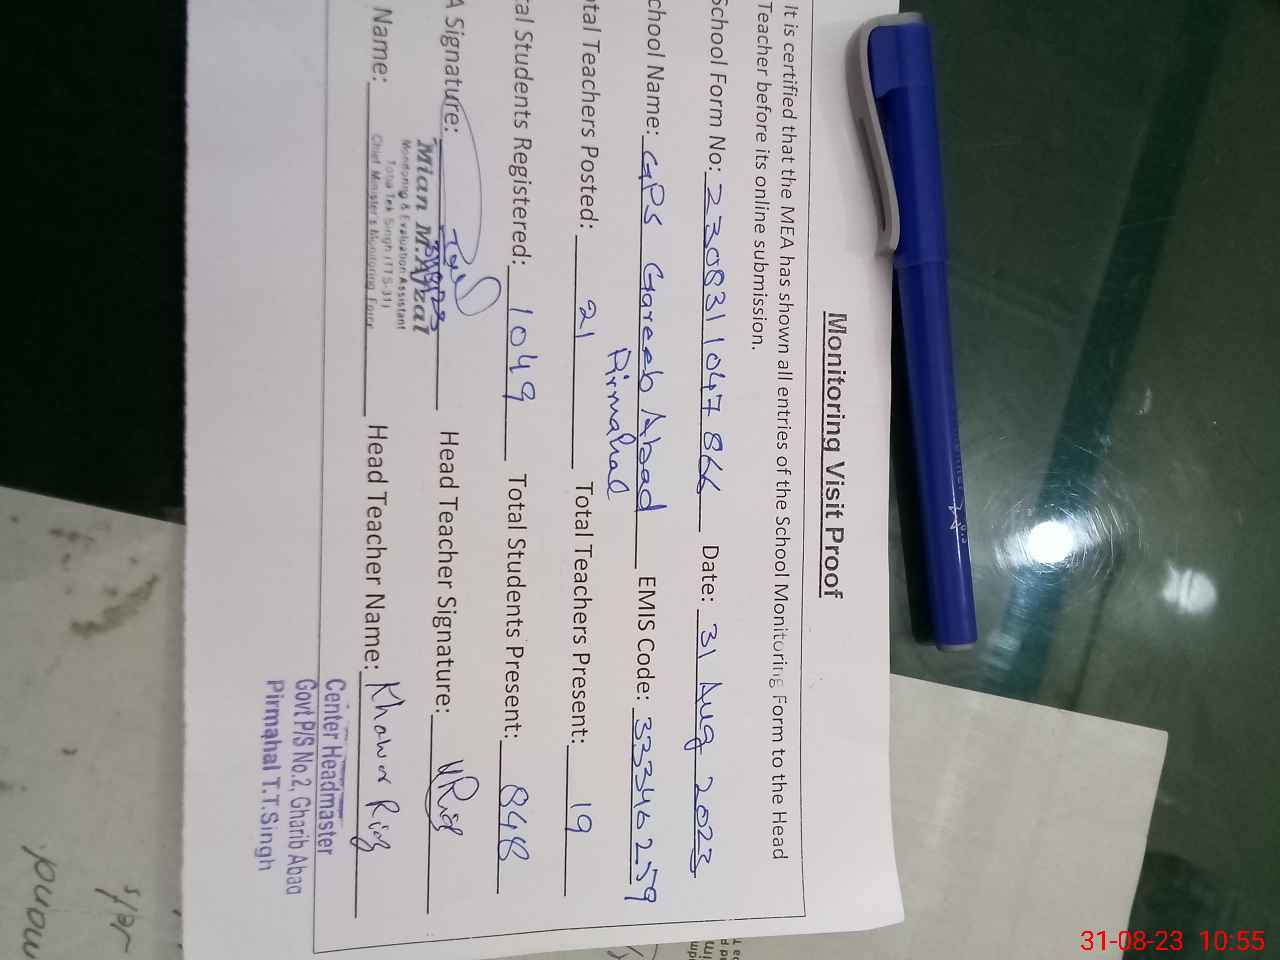 Monitoring Visit Proof
It is certified that the MEA has shown all entries of the School Monitoring Form to the Head
Teacher before its online submission.
School Form No: 230831 1047 866 Date: 31 Aug 2023
chool Name: GPS Gareeb Abad EMIS Code: 33346259
Pirmahal
tal Teachers Posted: 21 Total Teachers Present: 19
tal Students Registered: 1049 Total Students Present: 848
A Signature: Head Teacher Signature:
Mian M.Afzal
Monitoring & Evaluation Assistant
Toba Tek Singh (TTS-31)
Chief Minister's Monitoring Force
Name: Head Teacher Name: Khawar Riaz
Center Headmaster
Govt P/S No.2, Gharib Abad
Pirmahal T.T.Singh
31-08-23 10:55